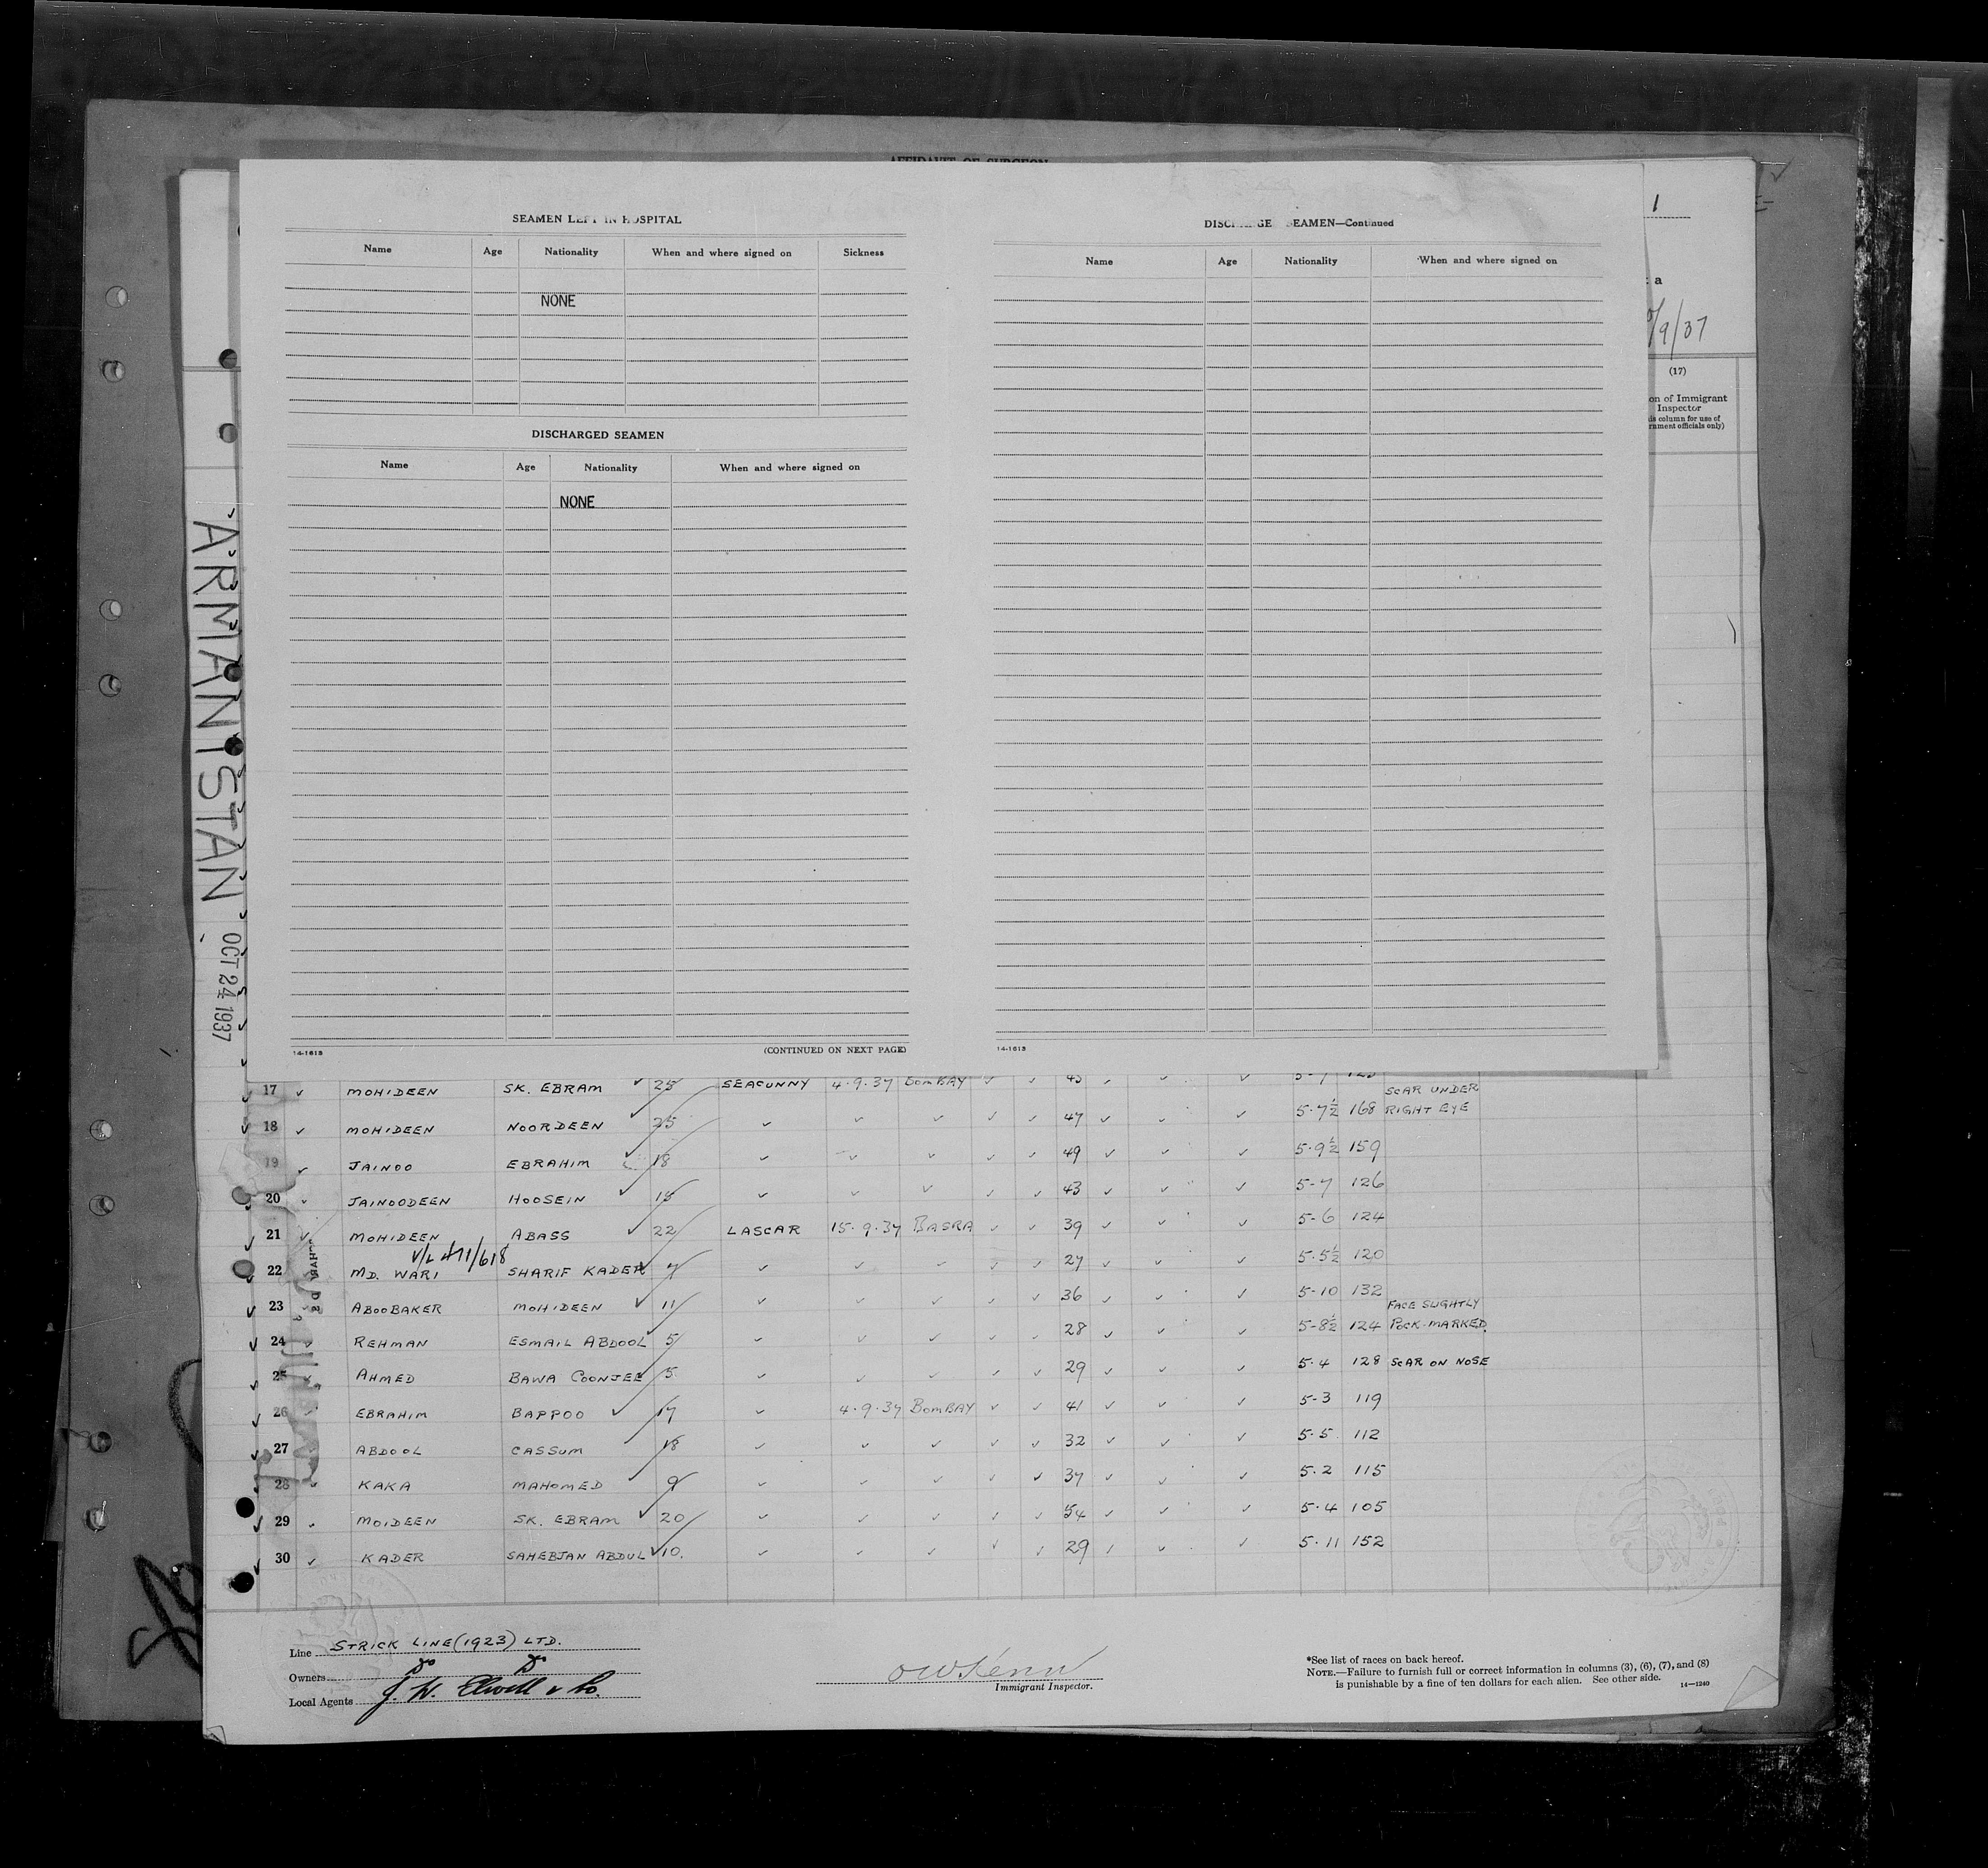 AFFIDAVIT OF SURGEON
SEAMEN LEFT IN HOSPITAL
Name Age Nationality When and where signed on Sickness
NONE
DISCHARGED SEAMEN
Name Age Nationality When and where signed on
NONE
14-1613 (CONTINUED ON NEXT PAGE)
SEAMEN—Continued
Name Age Nationality When and where signed on
14-1613
1
a
/9/37
(17)
on of Immigrant
Inspector
is column for use of
rnment officials only)
ARMANISTAN
OCT 24 1937
17 MOHIDEEN SK. EBRAM 25 SEACUNNY 4.9.37 BOMBAY
18 MOHIDEEN NOORDEEN 25 47 5.7½ 168 SCAR UNDER RIGHT EYE
19 JAINOO EBRAHIM 18 49 5.9½ 159
20 JAINOODEEN HOOSEIN 15 43 5-7 126
21 MOHIDEEN ABASS 22 LASCAR 15.9.37 BASRA 39 5-6 124
V/L 471/618
22 MD. WARI SHARIF KADER 7 27 5.5½ 120
23 ABOOBAKER MOHIDEEN 11 36 5-10 132
24 REHMAN ESMAIL ABDOOL 5 28 5-8½ 124 FACE SLIGHTLY POCK-MARKED
25 AHMED BAWA COONJEE 5 29 5.4 128 SCAR ON NOSE
26 EBRAHIM BAPPOO 17 4.9.37 BOMBAY 41 5-3 119
27 ABDOOL CASSUM 18 32 5.5 112
28 KAKA MAHOMED 9 37 5.2 115
29 MOIDEEN SK. EBRAM 20 54 5.4 105
30 KADER SAHEBJAN ABDUL 10. 29 5.11 152
Line STRICK LINE (1923) LTD.
Owners Do Do
Local Agents J. W. Elwell & Co.
Immigrant Inspector.
*See list of races on back hereof.
NOTE.—Failure to furnish full or correct information in columns (3), (6), (7), and (8)
is punishable by a fine of ten dollars for each alien. See other side.
14—1240